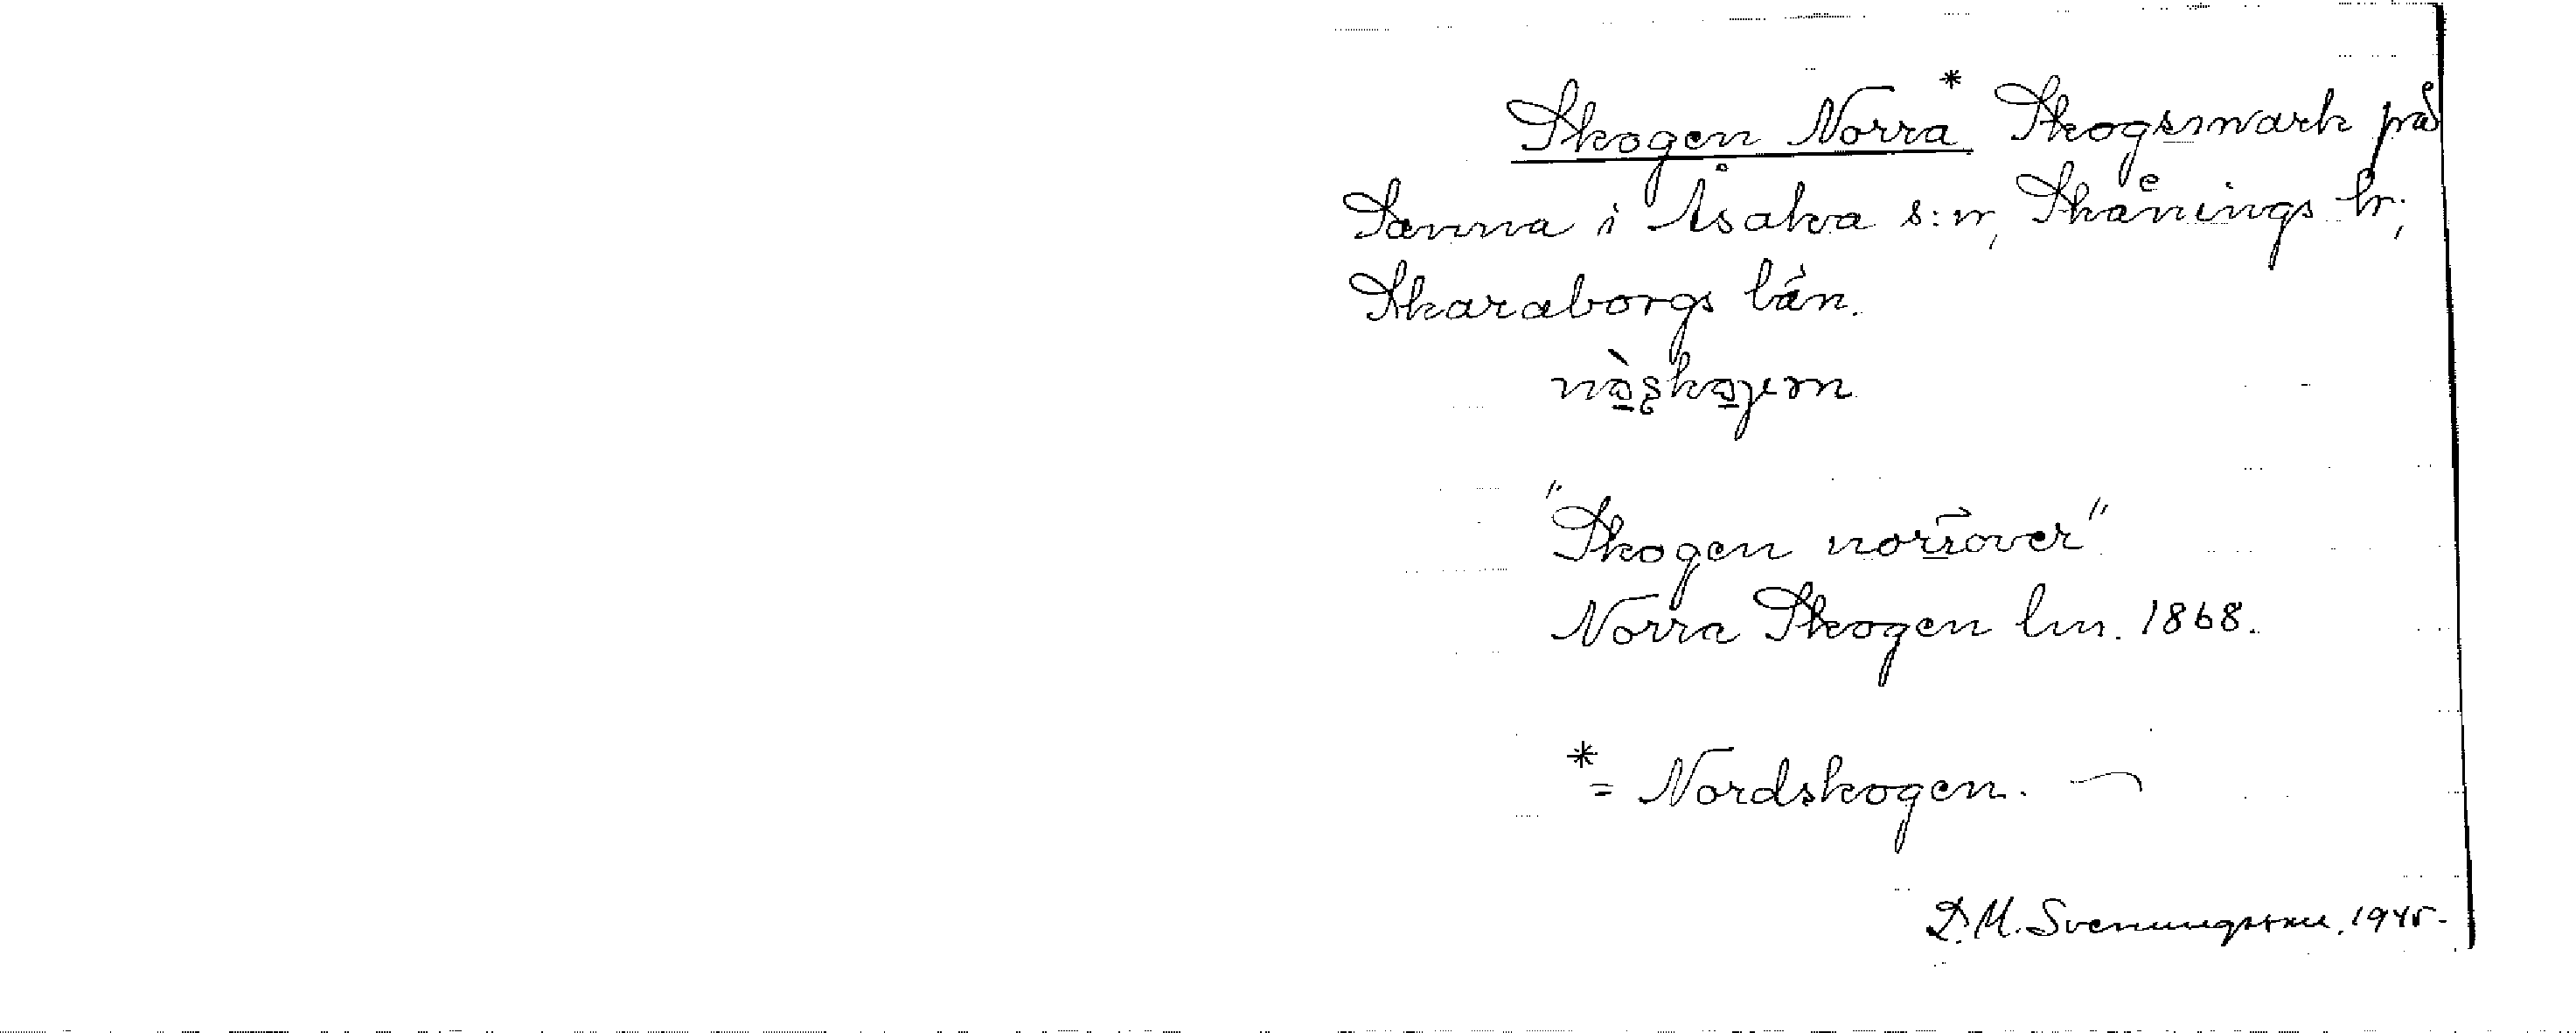 Skogen Norra* Skogsmark på
Sanna i Åsaka s:n, Skånings hr,
Skaraborgs län.
"Skogen norröver"
Norra Skogen lm. 1868.
*= Nordskogen.
D. M. Svenungsson. 1945.